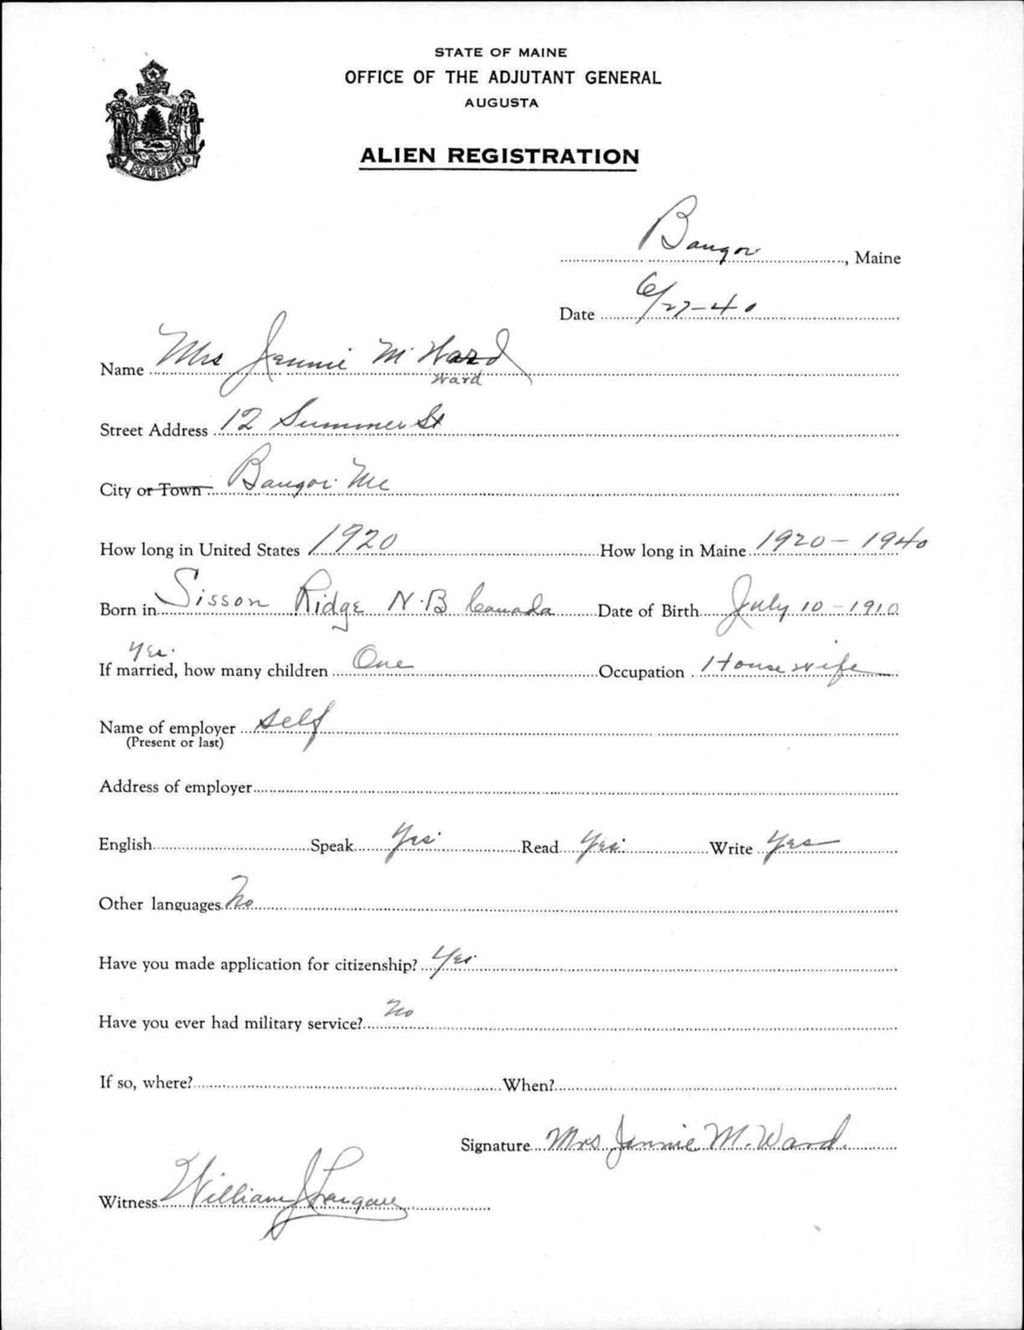 STATE OF MAINE
OFFICE OF THE ADJUTANT GENERAL
AUGUSTA
ALIEN REGISTRATION
MAINE
Bangor, Maine
Date 6/27-40
Name Mrs Jennie M Ward
Ward
Street Address 12 Summer St
City or Town Bangor Me
How long in United States 1920 How long in Maine 1920 - 1940
Born in Sisson Ridge N.B Canada Date of Birth July 10 - 1910
Yes.
If married, how many children One Occupation Housewife
Name of employer self
(Present or last)
Address of employer
English Speak Yes. Read Yes. Write Yes
Other languages No
Have you made application for citizenship? Yes.
Have you ever had military service? No
If so, where? When?
Signature Mrs Jennie M. Ward.
Witness William J